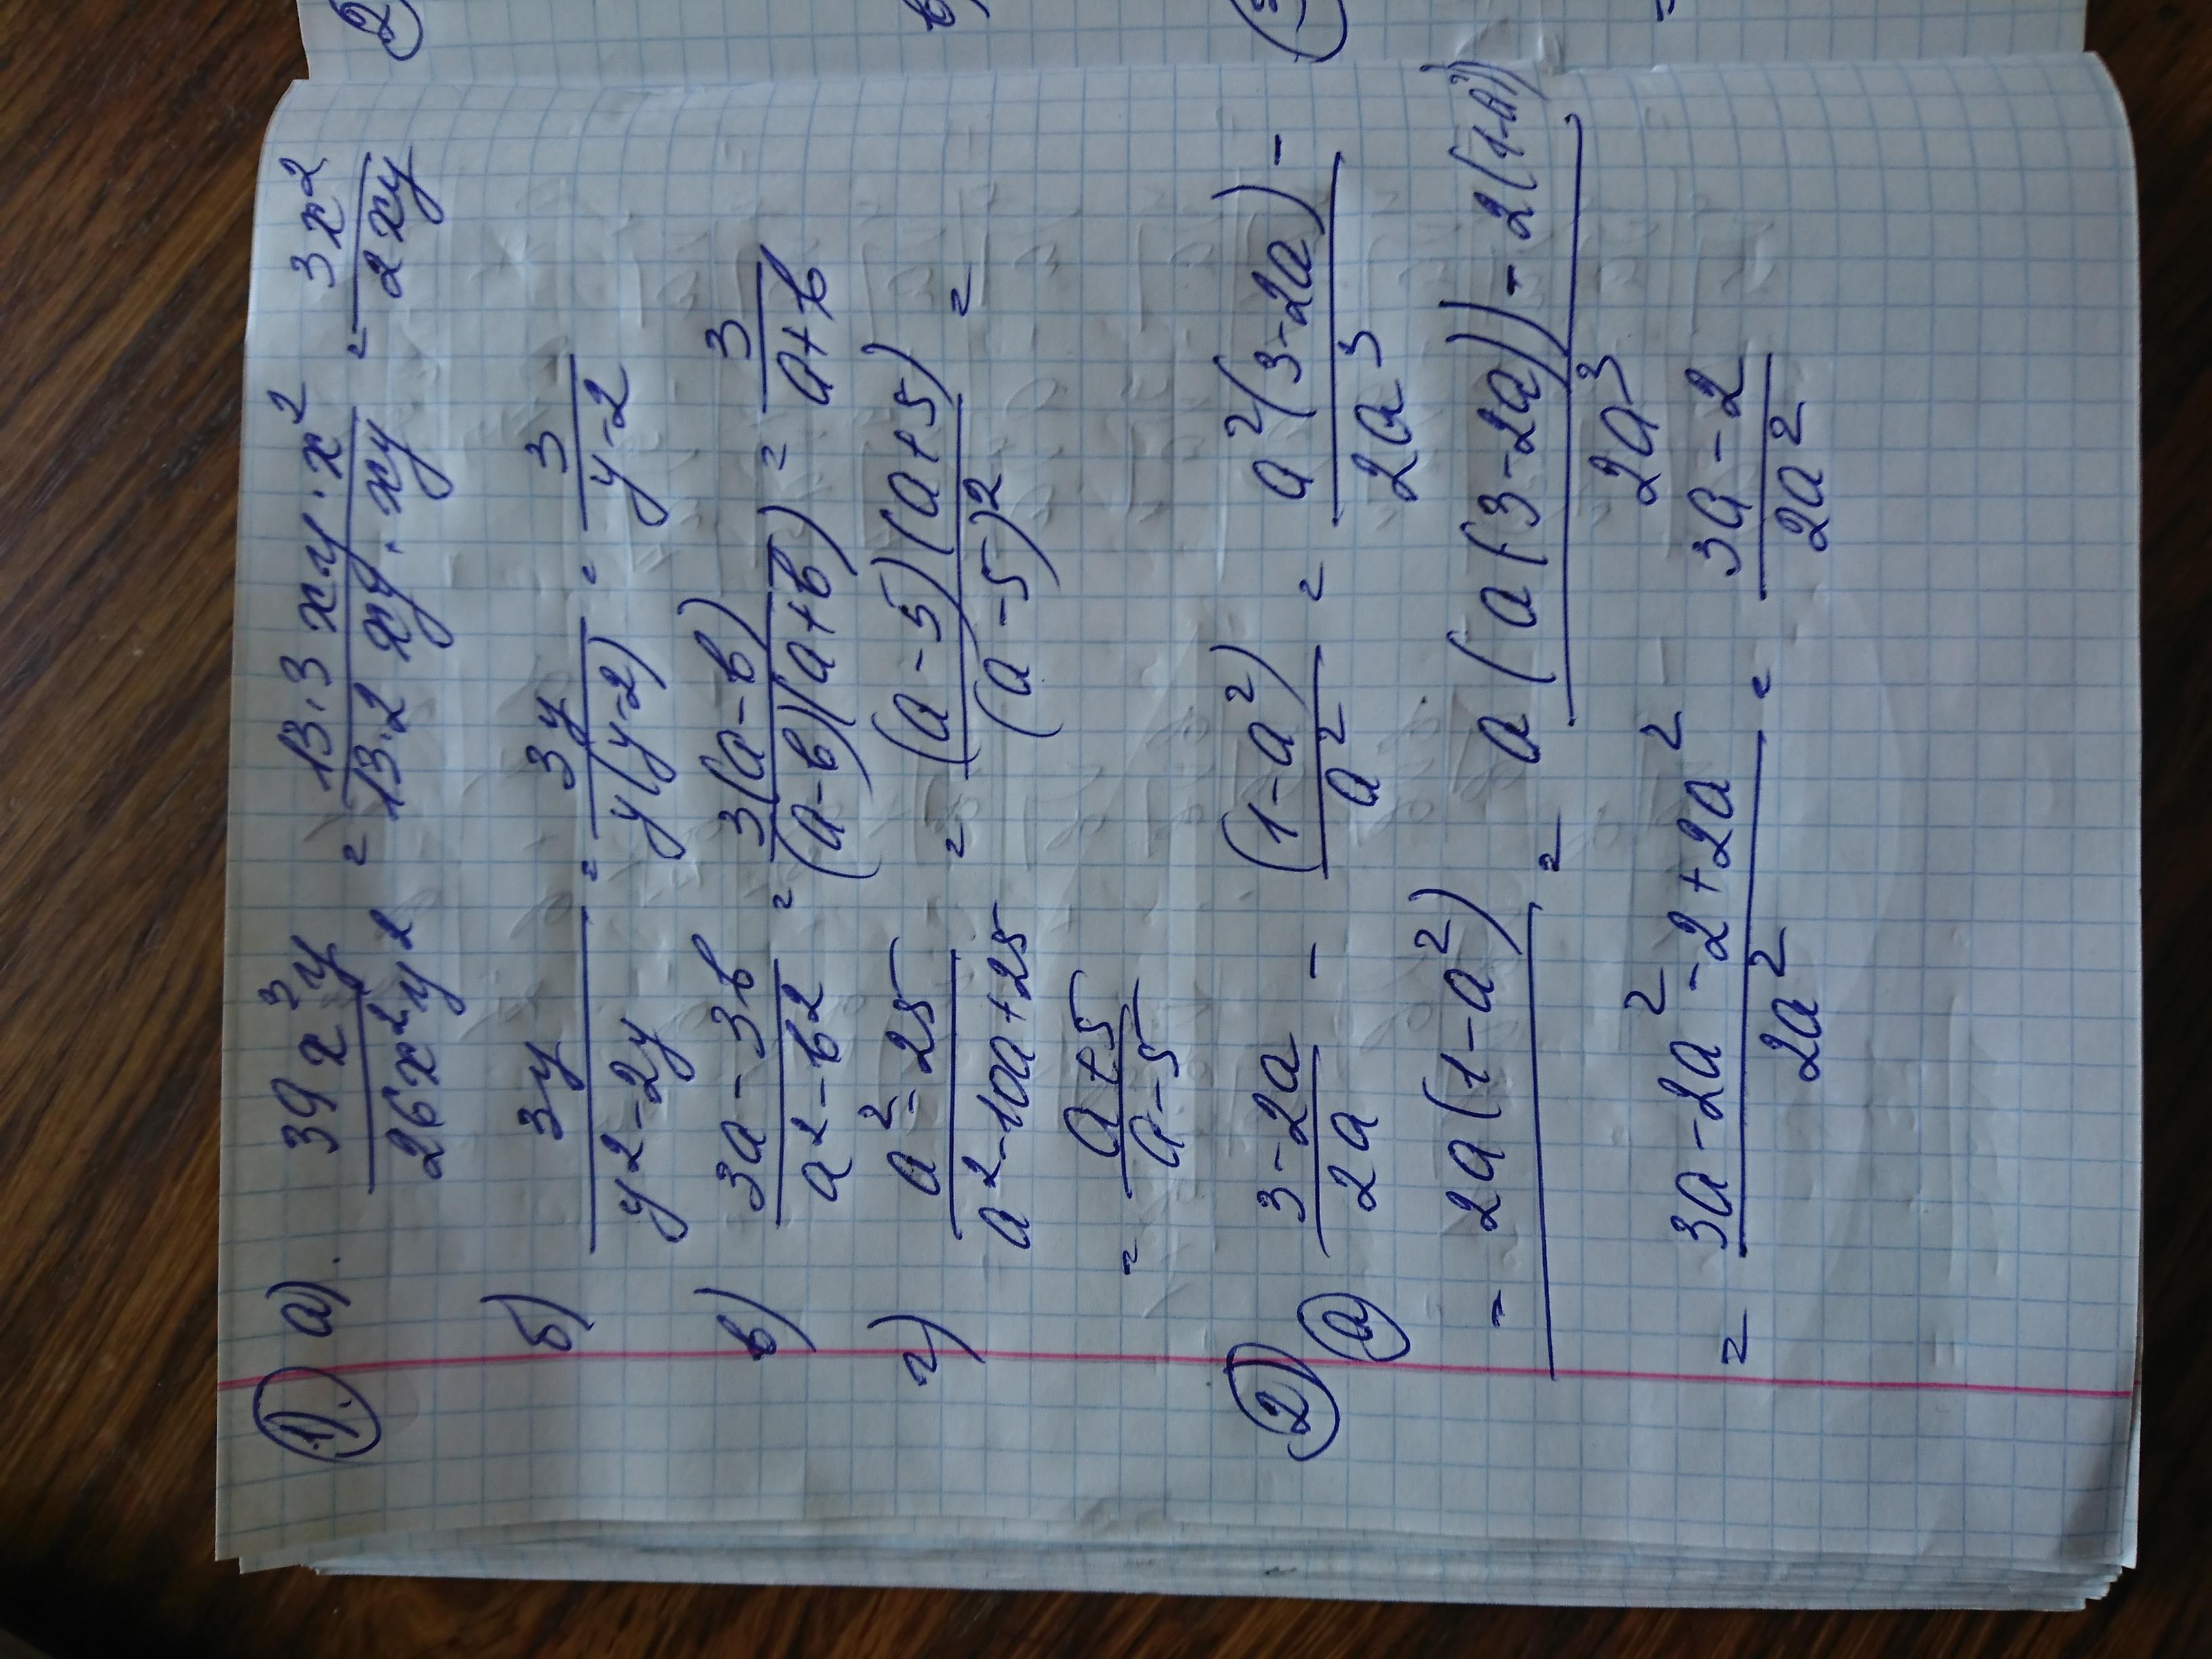 1). а). 39x³y / 26x²y² = 13·3 xy·x² / 13·2 xy·xy = 3x² / 2xy
б) 3y / y²-2y = 3y / y(y-2) = 3 / y-2
в) 3a-3b / a²-b² = 3(a-b) / (a-b)(a+b) = 3 / a+b
г) a²-25 / a²-10a+25 = (a-5)(a+5) / (a-5)² =
= a+5 / a-5
2) а) 3-2a / 2a - (1-a²) / a² = a²(3-2a) / 2a³ -
- 2a(1-a²) = a(a(3-2a))-2(1-a²)) / 2a³
= 3a-2a²-2+2a² / 2a² = 3a-2 / 2a²
2
в)
=